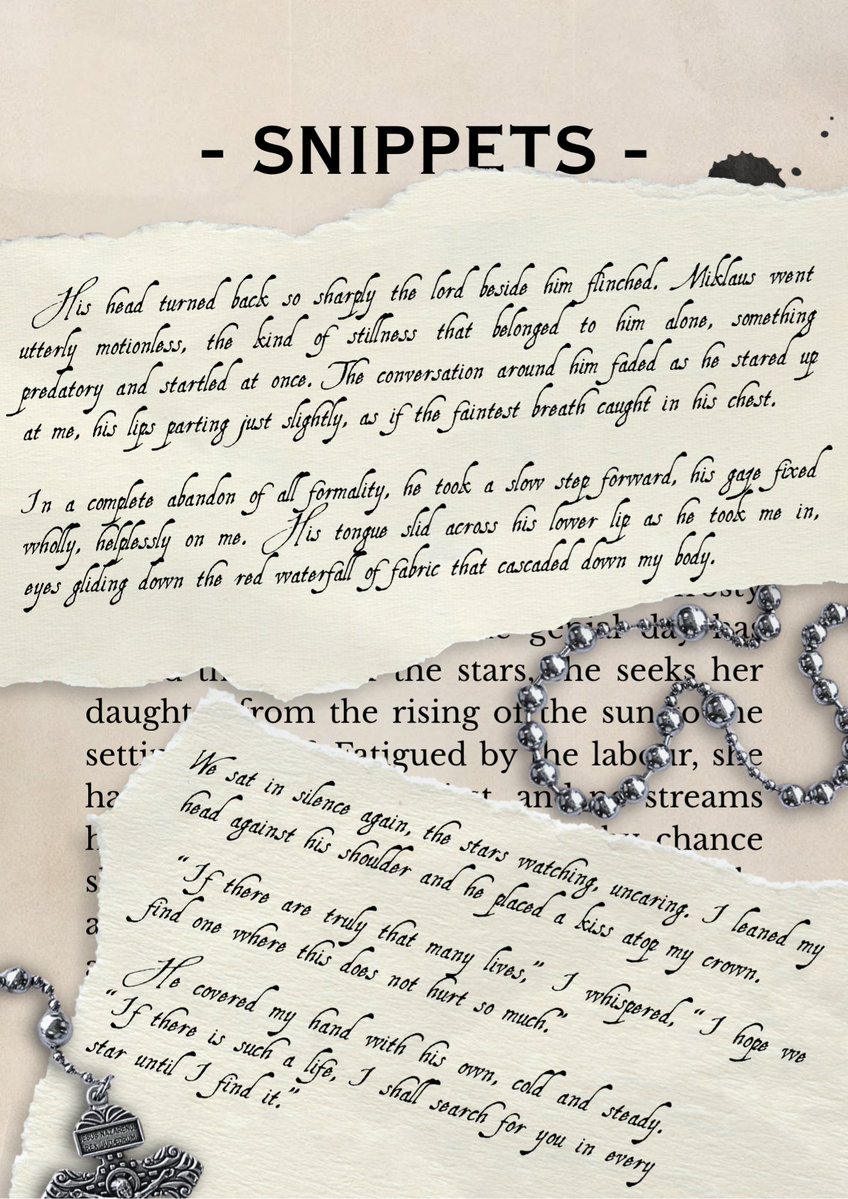 - SNIPPETS -
His head turned back so sharply the lord beside him flinched. Miklaus went
utterly motionless, the kind of stillness that belonged to him alone, something
predatory and startled at once. The conversation around him faded as he stared up
at me, his lips parting just slightly, as if the faintest breath caught in his chest.
In a complete abandon of all formality, he took a slow step forward, his gaze fixed
wholly, helplessly on me. His tongue slid across his lower lip as he took me in,
eyes gliding down the red waterfall of fabric that cascaded down my body.
genial day has
the stars, she seeks her
from the rising of the sun to the
Fatigued by the labour, she
and no streams
chance
We sat in silence again, the stars watching, uncaring. I leaned my
head against his shoulder and he placed a kiss atop my crown.
“If there are truly that many lives,” I whispered, “I hope we
find one where this does not hurt so much.”
He covered my hand with his own, cold and steady.
“If there is such a life, I shall search for you in every
star until I find it.”